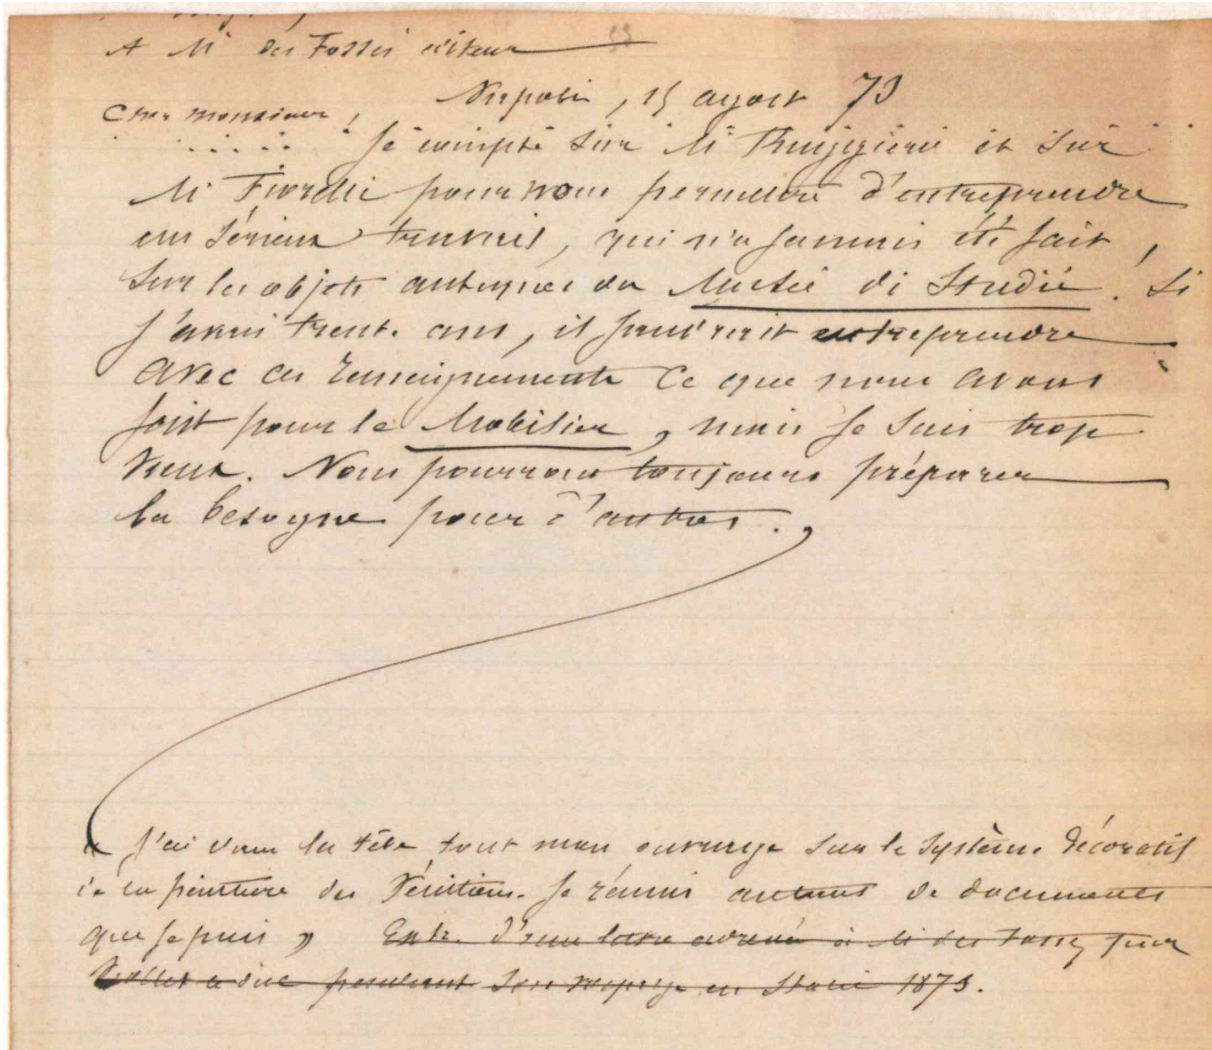 A Mr des Fossés éditeur
Naples, 15 agost 73
Cher monsieur,
. . . . . Je compte sur Mr Ruggieri et sur
Mr Fiorelli pour nous permettre d'entreprendre
un sérieux travail, qui n'a jamais été fait,
sur les objets antiques du Musée di Studié. Si
j'avais trente ans, il faudrait entreprendre
avec ces renseignements ce que nous avons
fait pour le Mobilier, mais je suis trop
vieux. Nous pourrons toujours préparer
la besogne pour d'autres.
J'ai dans la tête tout mon ouvrage sur le système décoratif
de la peinture des Vénitiens. Je réunis autant de documents
que je puis " Extr. d'une lettre adressée à Mr des Fossez par
Viollet le duc pendant son voyage en Italie 1873.